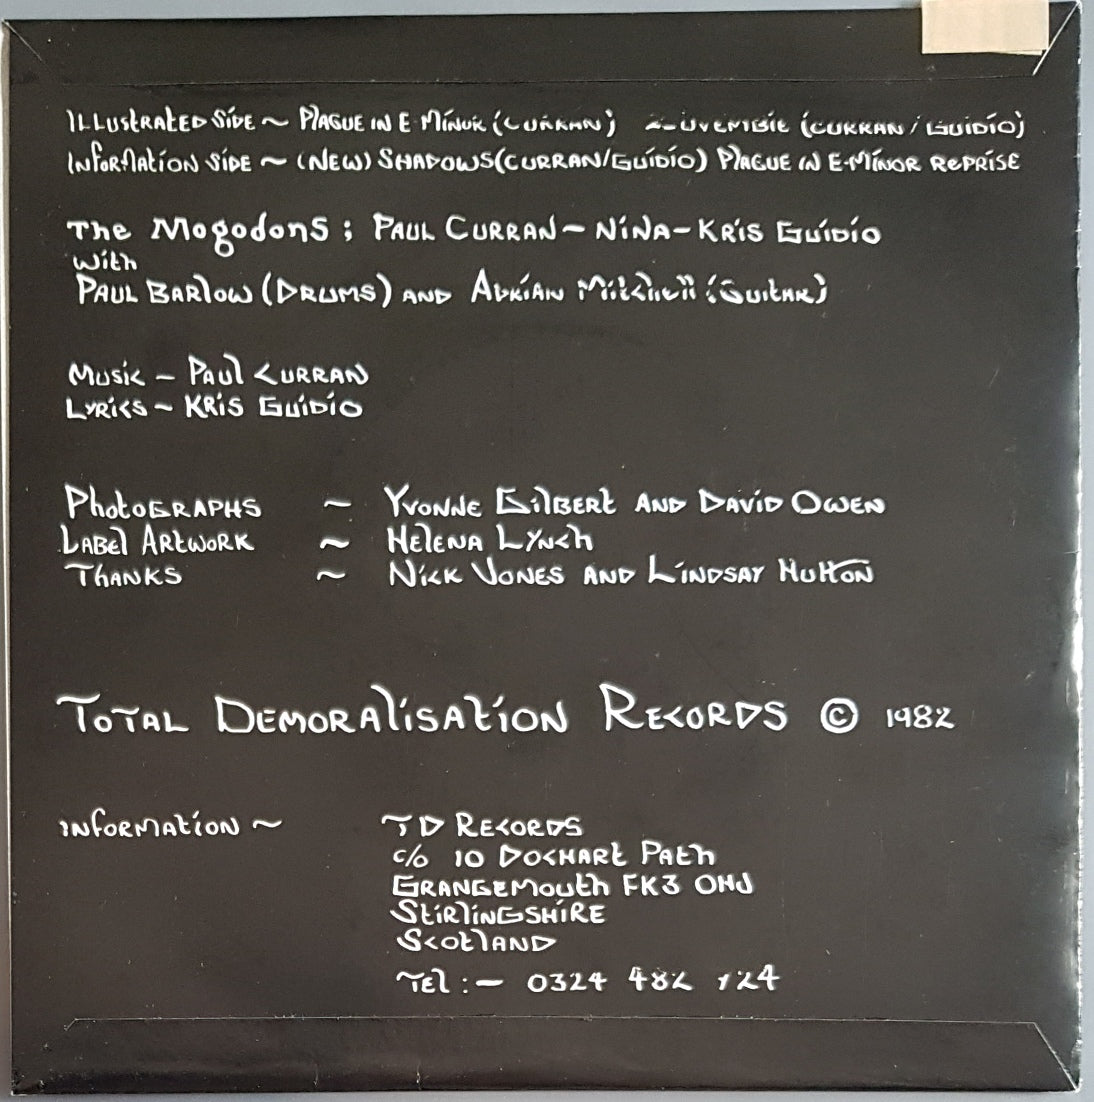 Illustrated Side ~ Plague in E Minor (Curran) (Curran / Guidio)
Information Side ~ (New) Shadows (Curran/Guidio) Plague in E Minor Reprise
The Mogodons ; Paul Curran - Nina - Kris Guidio
with
Paul Barlow (Drums) and Adrian Mitchell (Guitar)
Music - Paul Curran
Lyrics ~ Kris Guidio
Photographs ~ Yvonne Gilbert and David Owen
Label Artwork ~ Helena Lynch
Thanks ~ Nick Jones and Lindsay Hutton
Total Demoralisation Records © 1982
Information ~ T D Records
c/o 10 Dochart Path
Grangemouth FK3 0HJ
Stirlingshire
Scotland
Tel :- 0324 482